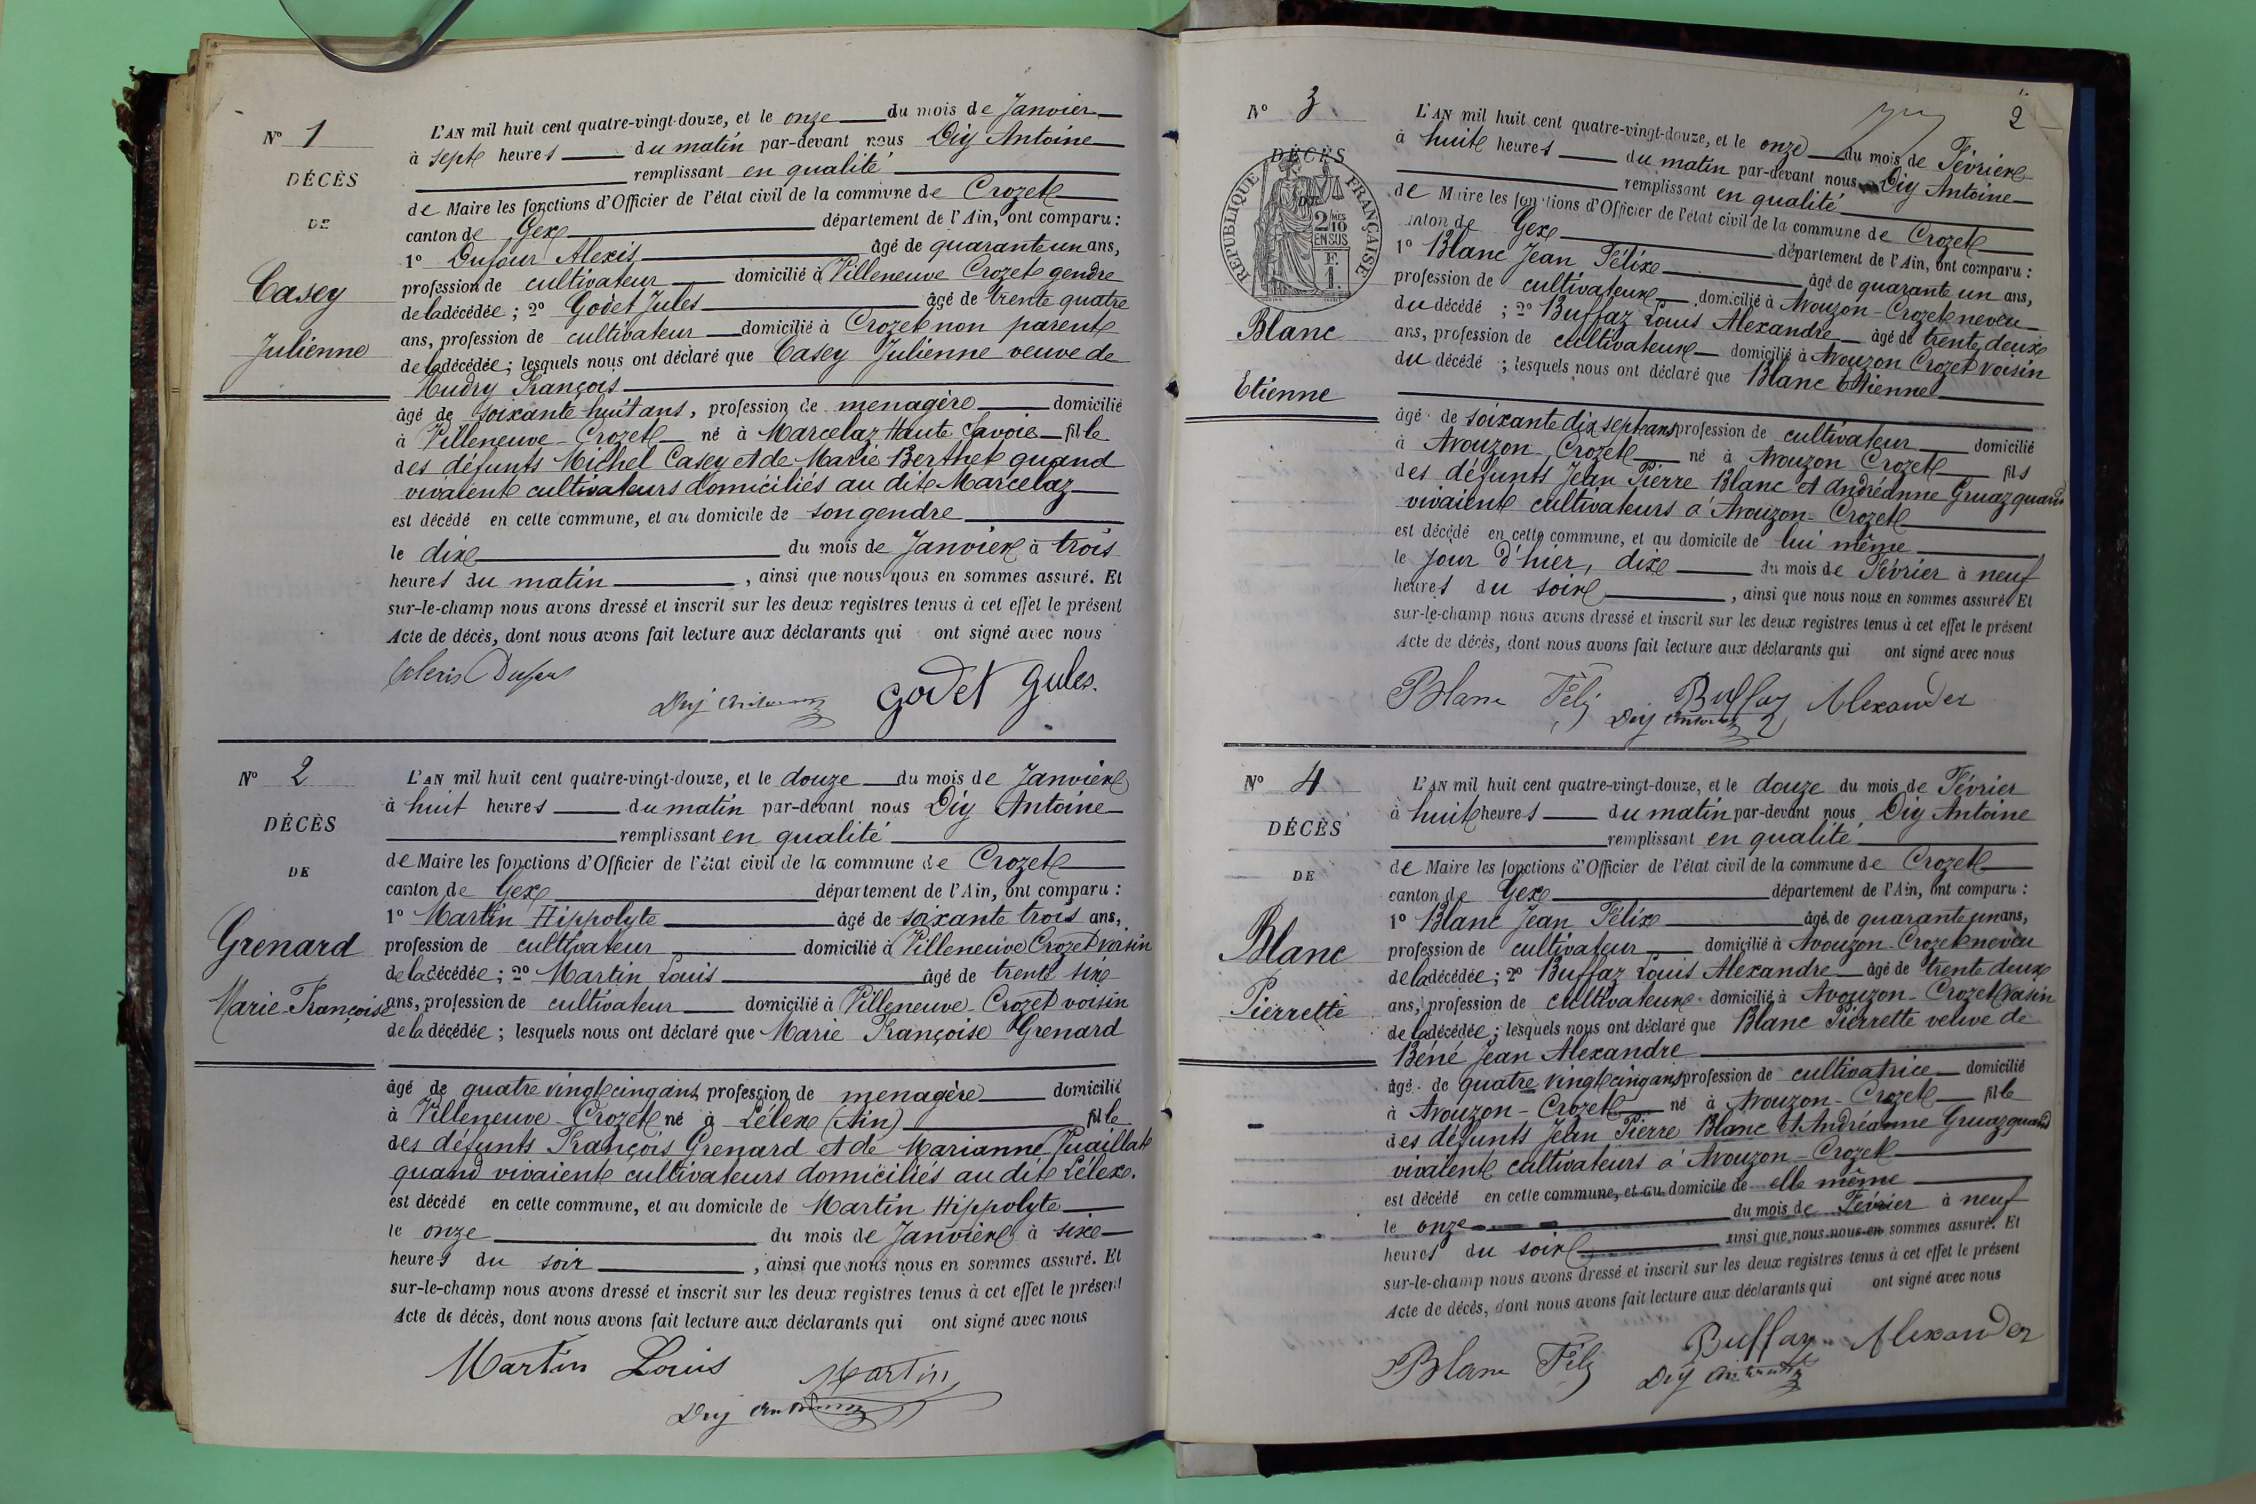 N° 1
DÉCÈS
DE
Casey
Julienne
L'AN mil huit cent quatre-vingt-douze, et le onze du mois de Janvier
à sept heures du matin par-devant nous Diy Antoine
remplissant en qualité
de Maire les fonctions d'Officier de l'état civil de la commune de Crozet
canton de Gex département de l'Ain, ont comparu :
1° Dufour Alexis âgé de quarante un ans,
profession de cultivateur domicilié à Villeneuve Crozet gendre
de la décédée ; 2° Godet Jules âgé de trente quatre
ans, profession de cultivateur domicilié à Crozet non parent
de la décédée ; lesquels nous ont déclaré que Casey Julienne veuve de
Mudry François
âgé de soixante huit ans, profession de menagère domicilié
à Villeneuve - Crozet né à Marcelaz Haute Savoie fille
des défunts Michel Casey et de Marie Berthet quand
vivaient cultivateurs domiciliés au dit Marcelaz
est décédé en cette commune, et au domicile de son gendre
le dix du mois de Janvier à trois
heures du matin , ainsi que nous nous en sommes assuré. Et
sur-le-champ nous avons dressé et inscrit sur les deux registres tenus à cet effet le présent
Acte de décès, dont nous avons fait lecture aux déclarants qui ont signé avec nous
Alexis Dufour
Diy Antoine
Godet Jules.
N° 2
DÉCÈS
DE
Grenard
Marie-Françoise
L'AN mil huit cent quatre-vingt-douze, et le douze du mois de Janvier
à huit heures du matin par-devant nous Diy Antoine
remplissant en qualité
de Maire les fonctions d'Officier de l'état civil de la commune de Crozet
canton de Gex département de l'Ain, ont comparu :
1° Martin Hippolyte âgé de soixante trois ans,
profession de cultivateur domicilié à Villeneuve Crozet voisin
de la décédée ; 2° Martin Louis âgé de trente six
ans, profession de cultivateur domicilié à Villeneuve - Crozet voisin
de la décédée ; lesquels nous ont déclaré que Marie Françoise Grenard
âgé de quatre vingt cinq ans profession de menagère domicilié
à Villeneuve - Crozet né à Lélex (Ain) fille
des défunts François Grenard et de Marianne Juaillat
quand vivaient cultivateurs domiciliés au dit Lélex.
est décédé en cette commune, et au domicile de Martin Hippolyte
le onze du mois de Janvier à six
heures du soir , ainsi que nous nous en sommes assuré. Et
sur-le-champ nous avons dressé et inscrit sur les deux registres tenus à cet effet le présent
Acte de décès, dont nous avons fait lecture aux déclarants qui ont signé avec nous
Martin Louis
Martin
Diy Antoine
2
N° 3
DÉCÈS
RÉPUBLIQUE FRANÇAISE
2/10 EN SUS
F. 1.
Blanc
Etienne
L'AN mil huit cent quatre-vingt-douze, et le onze du mois de Février
à huit heures du matin par-devant nous Diy Antoine
remplissant en qualité
de Maire les fonctions d'Officier de l'état civil de la commune de Crozet
canton de Gex département de l'Ain, ont comparu :
1° Blanc Jean Félix âgé de quarante un ans,
profession de cultivateur domicilié à Avouzon - Crozet neveu
du décédé ; 2° Buffaz Louis Alexandre âgé de trente deux
ans, profession de cultivateur domicilié à Avouzon Crozet voisin
du décédé ; lesquels nous ont déclaré que Blanc Etienne
âgé de soixante dix sept ans profession de cultivateur domicilié
à Avouzon - Crozet né à Avouzon Crozet fils
des défunts Jean Pierre Blanc et Andréanne Gruaz quand
vivaient cultivateurs à Avouzon - Crozet
est décédé en cette commune, et au domicile de lui même
le jour d'hier, dix du mois de Février à neuf
heures du soir , ainsi que nous nous en sommes assuré. Et
sur-le-champ nous avons dressé et inscrit sur les deux registres tenus à cet effet le présent
Acte de décès, dont nous avons fait lecture aux déclarants qui ont signé avec nous
Blanc Félix Buffaz Alexander
Diy Antoine
N° 4
DÉCÈS
DE
Blanc
Pierrette
L'AN mil huit cent quatre-vingt-douze, et le douze du mois de Février
à huit heures du matin par-devant nous Diy Antoine
remplissant en qualité
de Maire les fonctions d'Officier de l'état civil de la commune de Crozet
canton de Gex département de l'Ain, ont comparu :
1° Blanc Jean Félix âgé de quarante un ans,
profession de cultivateur domicilié à Avouzon - Crozet neveu
de la décédée ; 2° Buffaz Louis Alexandre âgé de trente deux
ans, profession de cultivateur domicilié à Avouzon - Crozet voisin
de la décédée ; lesquels nous ont déclaré que Blanc Pierrette veuve de
Béné Jean Alexandre
âgé de quatre vingt cinq ans profession de cultivatrice domicilié
à Avouzon - Crozet né à Avouzon - Crozet fille
des défunts Jean Pierre Blanc et Andréanne Gruaz quand
vivaient cultivateurs à Avouzon - Crozet
est décédé en cette commune, et au domicile de elle même
le onze du mois de Février à neuf
heures du soir ainsi que nous nous en sommes assuré. Et
sur-le-champ nous avons dressé et inscrit sur les deux registres tenus à cet effet le présent
Acte de décès, dont nous avons fait lecture aux déclarants qui ont signé avec nous
Blanc Félix Buffaz Alexander
Diy Antoine